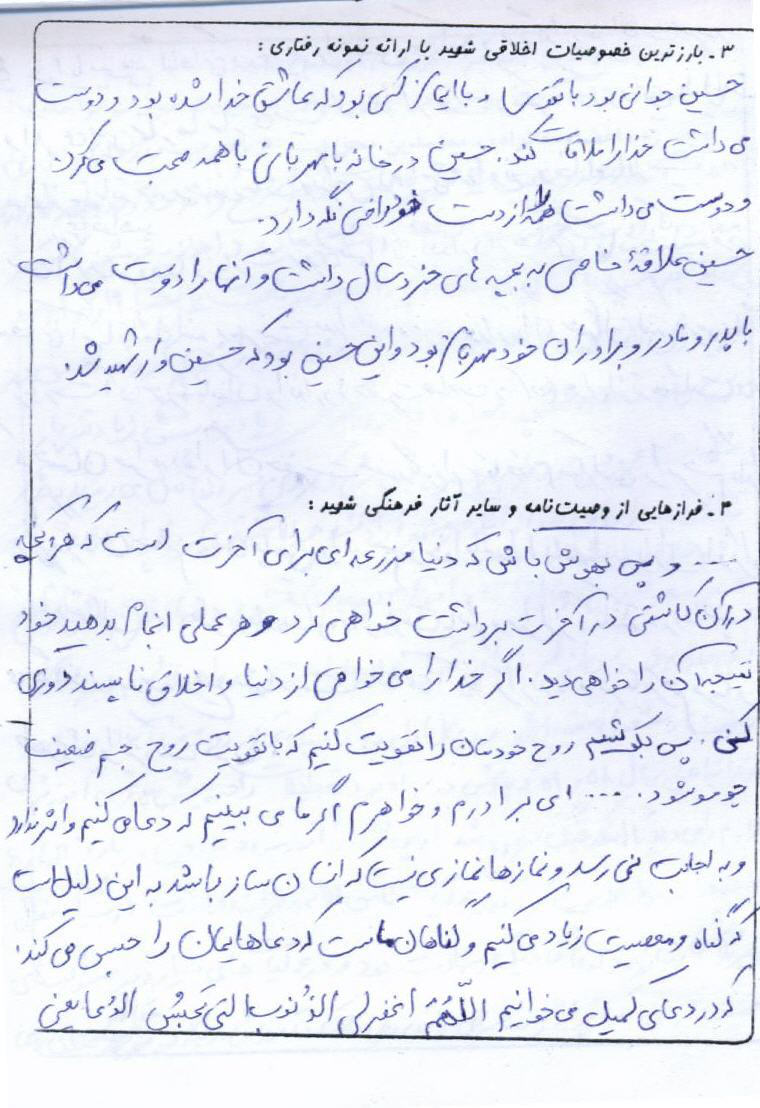 ۳ـ بارزترین خصوصیات اخلاقی شهید با ارائه نمونه رفتاری :
حسین جوانی بود با تقوی و با ایمان کسی بود که عاشق خدا شده بود و دوست
می داشت خدا را ملاقات کند. حسین در خانه با مهربانی با همه صحبت می کرد.
و دوست می داشت همه را از دست خود راضی نگه دارد.
حسین علاقهٔ خاصی به بچه های خردسال داشت و آنها را دوست می داشت
با پدر و مادر و برادران خود مهربان بود و این حسین بود که حسین وار شهید شد.
۴ـ فرازهایی از وصیت‌نامه و سایر آثار فرهنگی شهید :
.... و پس بهوش باش که دنیا مزرعه ای برای آخرت است که هر آنچه
در آن کاشتی در آخرت برداشت خواهی کرد و هر عملی انجام بدهید خود
نتیجه آن را خواهی دید. اگر خدا را می خواهی از دنیا و اخلاق ناپسند دوری
کنی. پس بکوشیم روح خودمان را تقویت کنیم که با تقویت روح جسم ضعیف
می شود. .... ای برادرم و خواهرم اگر ما می بینیم که دعا می کنیم و اثر ندارد
و به اجابت نمی رسد و نمازها نمازی نیست که انسان ساز باشد به این دلیل است
که گناه و معصیت زیاد می کنیم و گناهان ماست که دعاهایمان را حبس می کند.
که در دعای کمیل می خوانیم اللّهُمَّ اغفرلی الذُنوب التی تَحبِسُ الدُعا یعنی